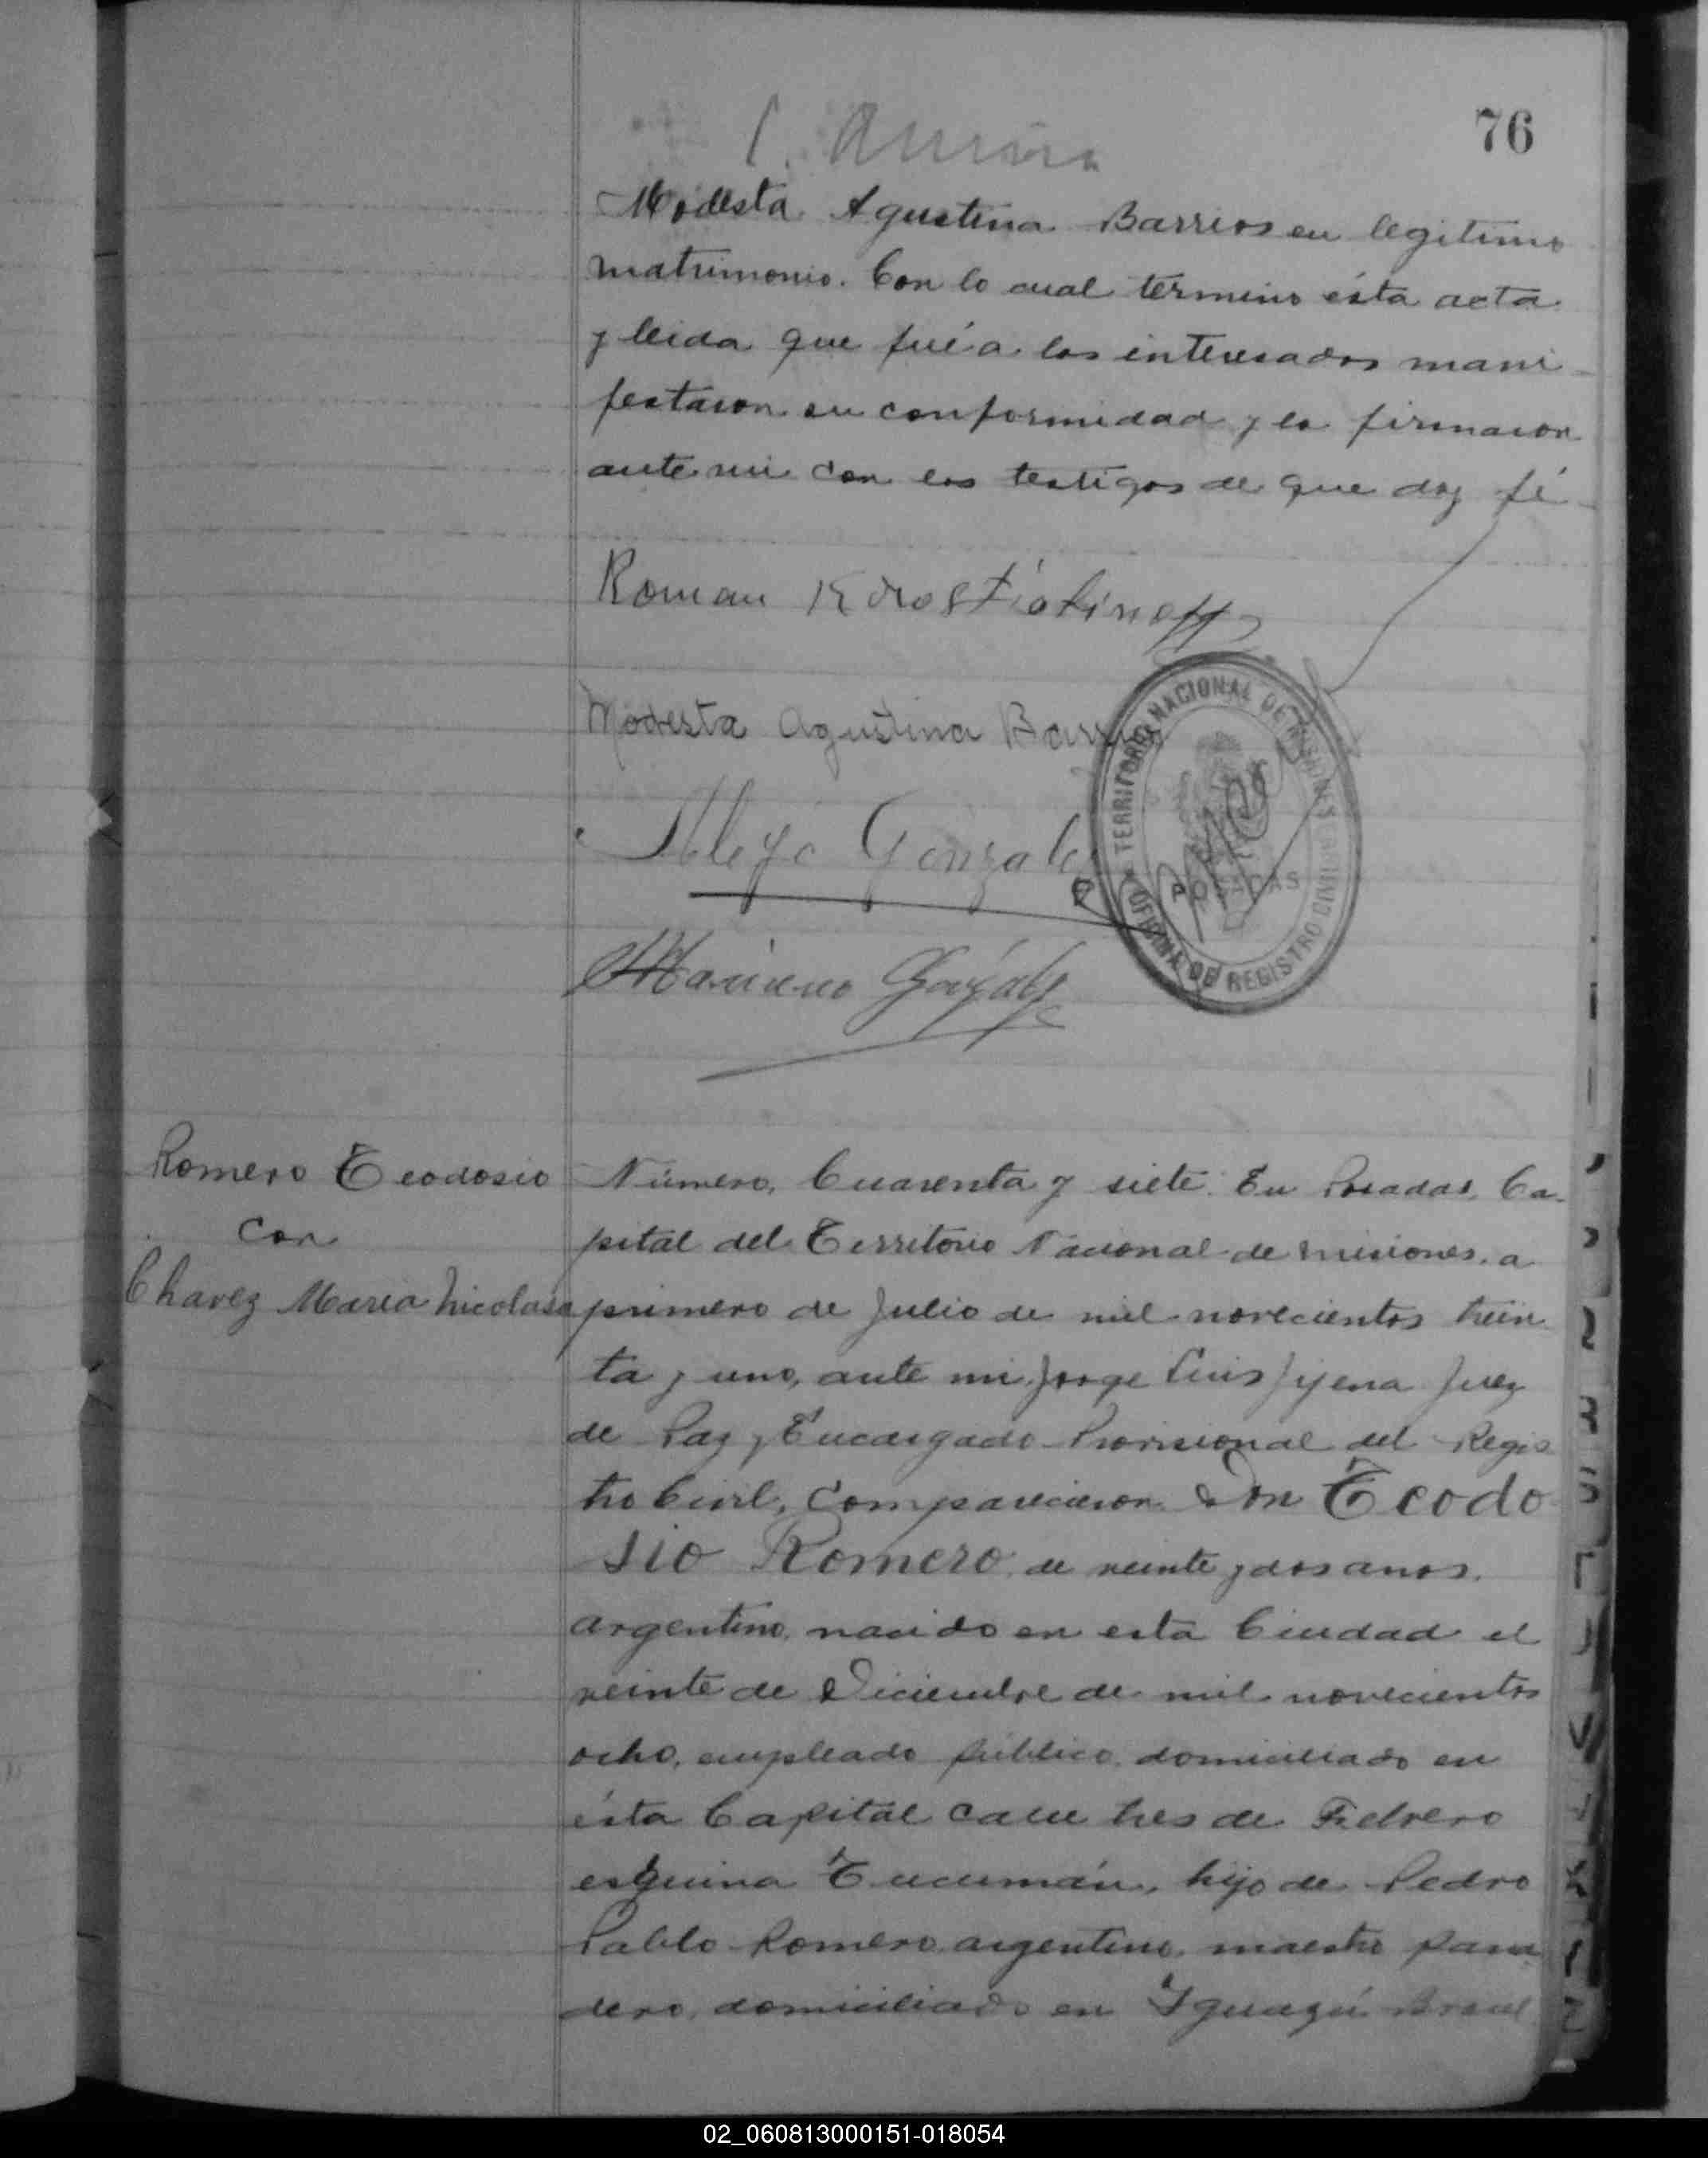 76
Modesta Agustina Barrios en legitimo
matrimonio. Con lo cual termino ésta acta
y leida que fué a los interesados mani
festaron su conformidad y la firmaron
ante mi con los testigos de que doy fé
Roman
Modesta Agustina Barrios
Alejo Gonzalez
Mariano Gonzalez
TERRITORIO NACIONAL DE MISIONES
POSADAS
OFICINA DE REGISTRO CIVIL
Romero Teodosio
con
Chavez Maria Nicolasa
Número, Cuarenta y siete. En Posadas, Ca-
pital del Territorio Nacional de Misiones, a
primero de Julio de mil novecientos trein
ta y uno, ante mi Jorge Luis Jijena Juez
de Paz y Encargado Provisional del Regis
tro Civil, Comparecieron Don Teodo
sio Romero, de veinte y dos anos.
argentino, nacido en esta Ciudad el
veinte de Diciembre de mil novecientos
ocho, empleado público, domiciliado en
ésta Capital calle tres de Febrero
esquina Tucumán, hijo de Pedro
Pablo Romero, argentino, maestro pana
dero, domiciliado en Iguazú Brasil
02_060813000151-018054